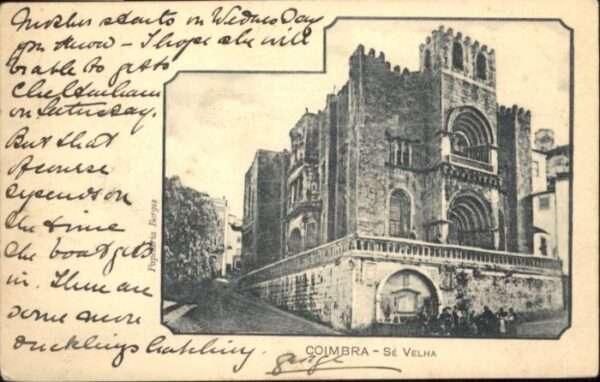 Mother starts on Wednesday
you know - I hope she will
be able to get to
Cheltenham
on Saturday.
But that
of course
depends on
the time
the boat gets
in. There are
some more
ducklings hatching.
George
Papelaria Borges
COIMBRA - SÉ VELHA